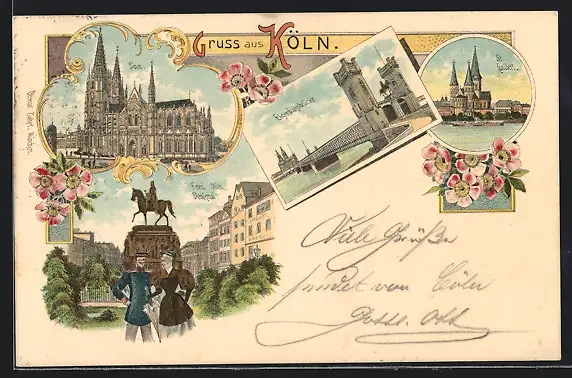 Gruss aus Köln.
Dom.
Eisenbahnbrücke
St.
Fried. Wilh.
Denkmal.
Viele Grüße
sendet von Cöln
Ott